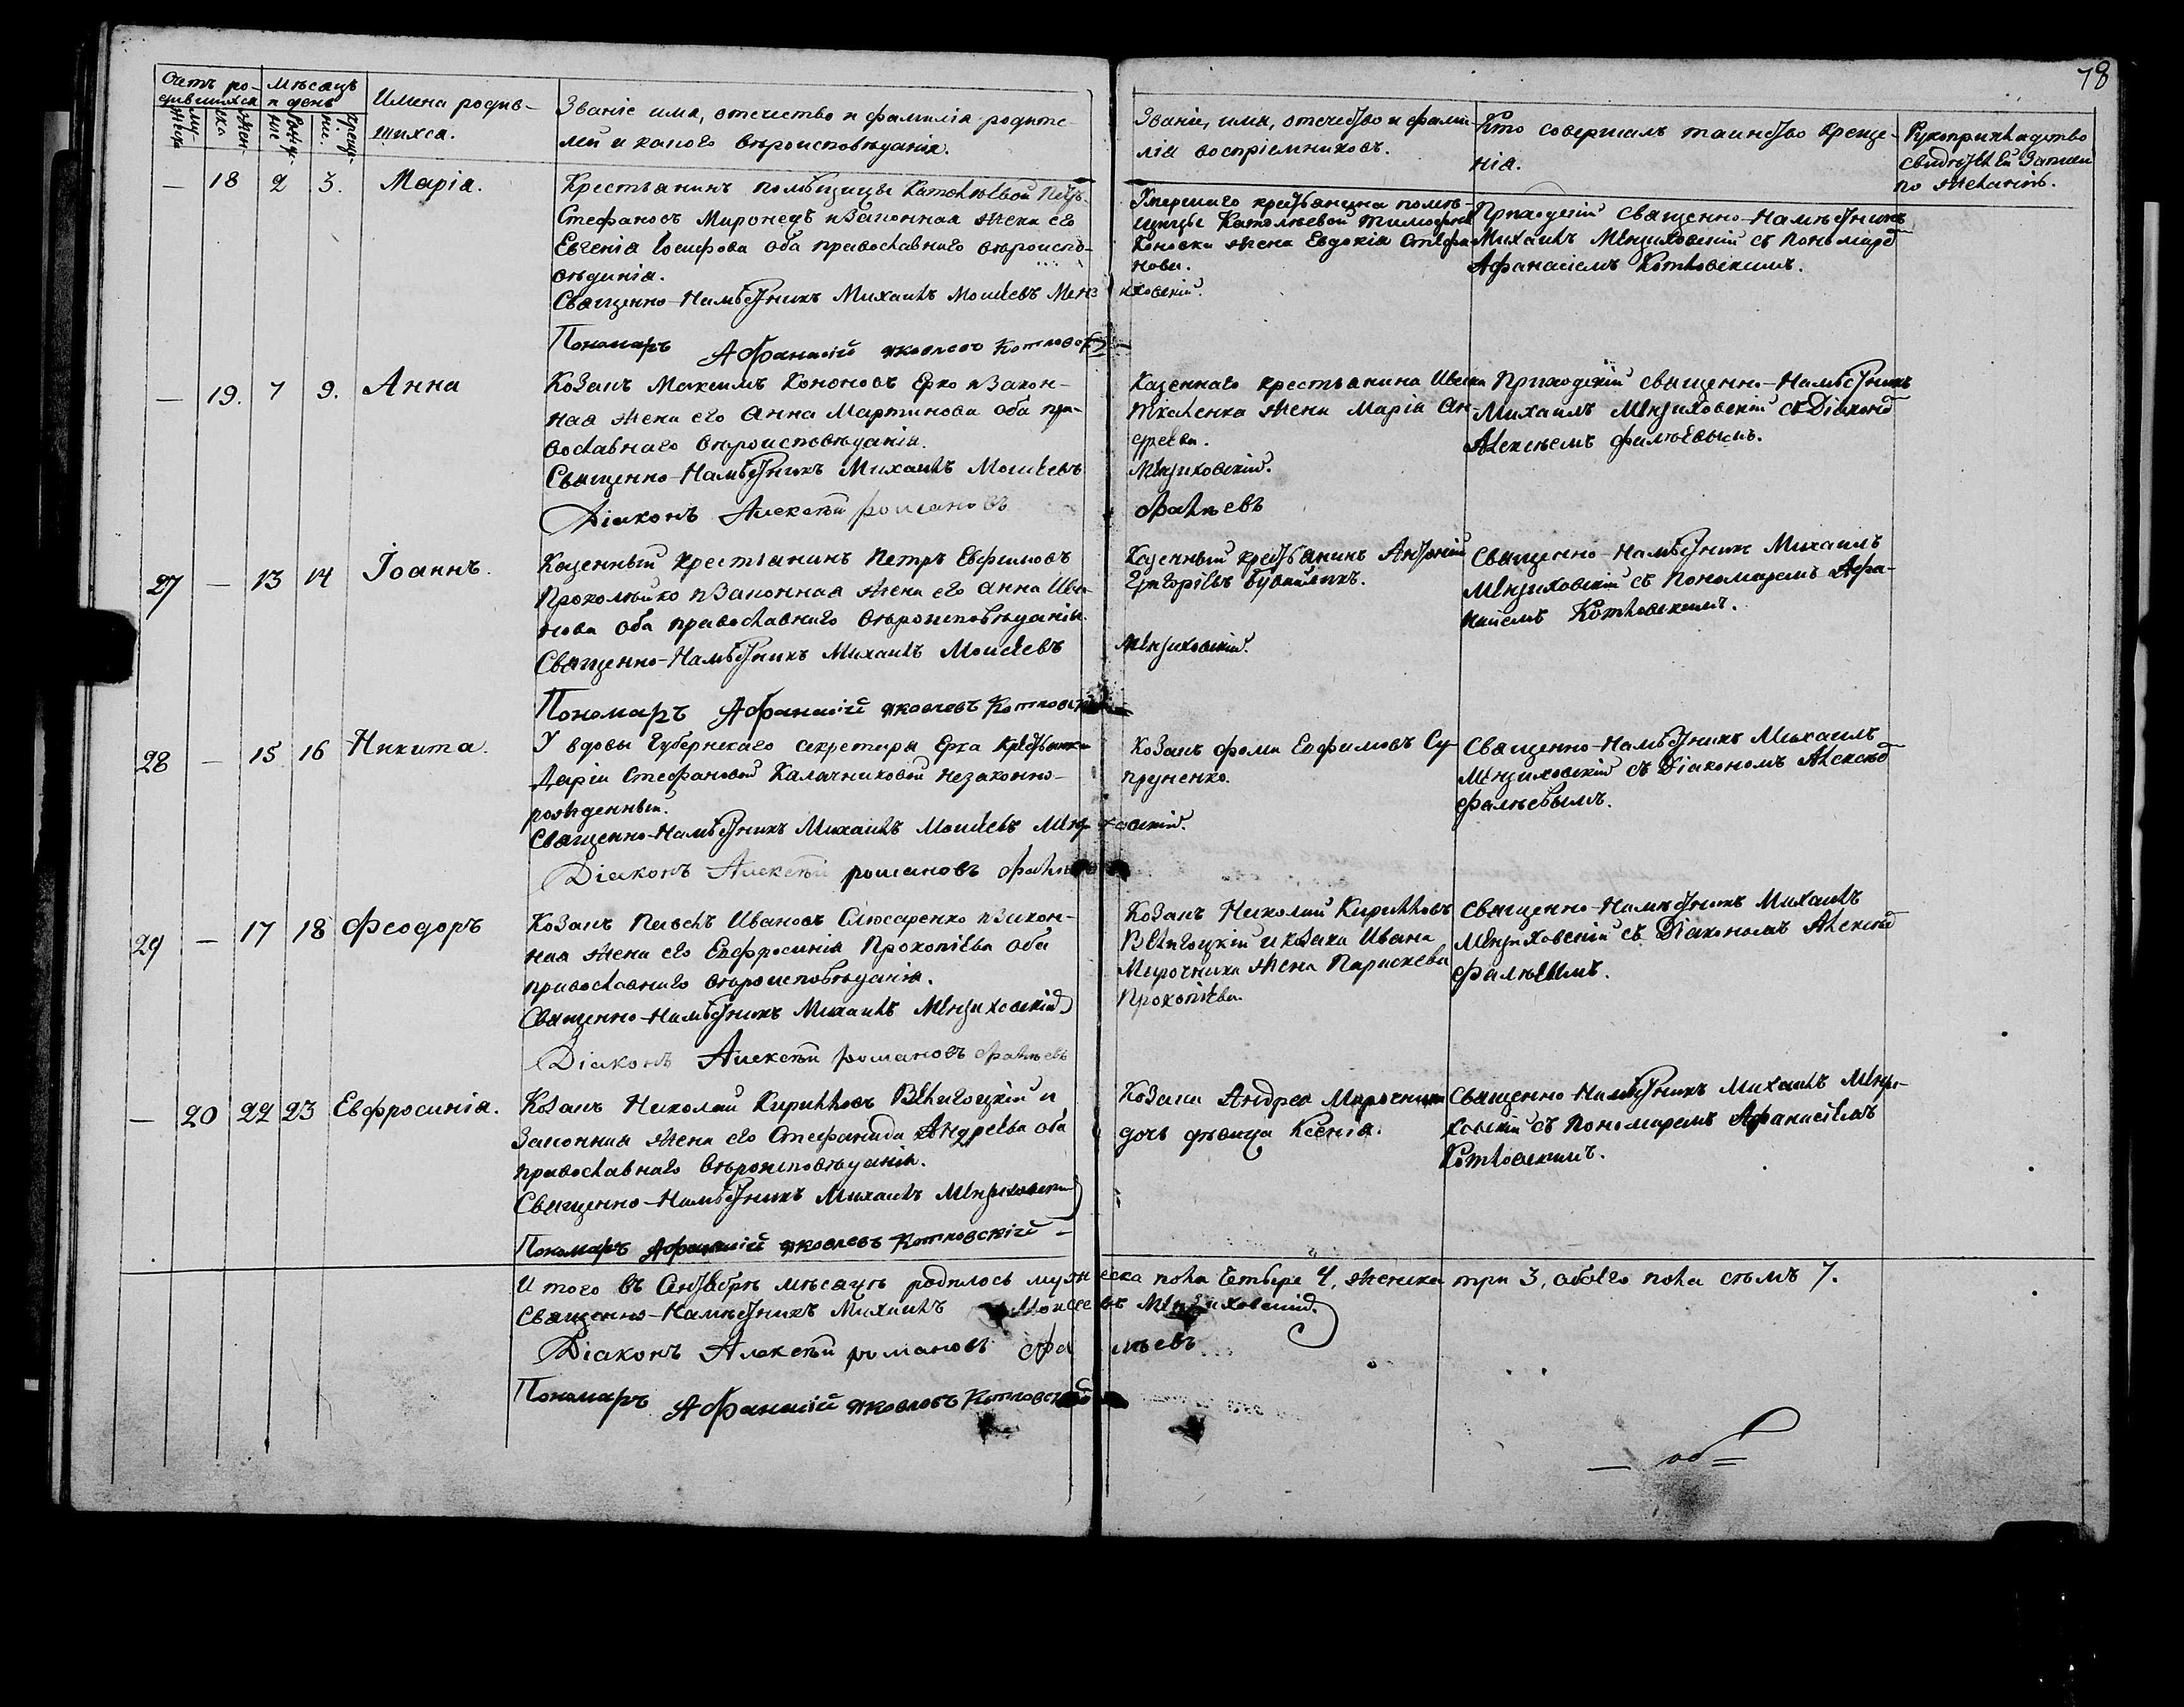 78
Счетъ ро-
дившихся
Мѣсяцъ
и день
Имена родив-
шихся.
Званіе имя, отечество и фамилія родите-
лей и какого вѣроисповѣданія.
Званіе, имя, отечество и фами-
лія воспріемниковъ.
Кто совершалъ таинство креще-
нія.
Рукоприкладство
свидѣтелей записи
по желанію.
— 18 2 3. Марія.
Крестьянинъ помѣщицы
Стефановъ Миронецъ и законная жена его
Евгенія Іосифова оба православнаго вѣроиспо-
вѣданія.
Священно-Намѣстникъ Михаилъ Моисеевъ Мензиховскій.
Пономаръ Афанасій Яковлевъ Котловскій
Умершаго крестьянина помѣ-
щицы
жена Евдокія Стефа-
нова.
Приходскій священно-Намѣстникъ
Михаилъ Мензиховскій съ Пономаремъ
Афанасіемъ Котловскимъ.
— 19. 7 9. Анна
Козакъ Максимъ Кононовъ Ерко и закон-
ная жена его Анна Мартинова оба пра-
вославнаго вѣроисповѣданія.
Священно-Намѣстникъ Михаилъ Моисеевъ Мензиховскій.
Діаконъ Алексѣй Романовъ Фалѣевъ
Казеннаго крестьянина Ивана
Ткаченка жена Марія Ан-
дреева.
Приходскій священно-Намѣстникъ
Михаилъ Мензиховскій съ Діакономъ
Алексѣемъ Фалѣевымъ.
27 — 13 14 Іоаннъ.
Казенный крестіанинъ Петръ Евфимовъ
и законная жена его Анна Ива-
нова оба православнаго вѣроисповѣданія.
Священно-Намѣстникъ Михаилъ Моисеевъ Мензиховскій.
Пономаръ Афанасій Яковлевъ Котловскій
Казенный крестьянинъ Антоній
Григоріевъ
Священно-Намѣстникъ Михаилъ
Мензиховскій съ Пономаремъ Афа-
насіемъ Котловскимъ.
28 — 15 16 Никита.
У вдовы Губернскаго секретаря Ерка крестьянки
Даріи Стефановой Калачниковой незаконно-
рожденный.
Священно-Намѣстникъ Михаилъ Моисеевъ Мензиховскій.
Діаконъ Алексѣй Романовъ Фалѣевъ
Козакъ Фома Евфимовъ Су-
пруненко.
Священно-Намѣстникъ Михаилъ
Мензиховскій съ Діакономъ Алексѣемъ
Фалѣевымъ.
29 — 17 18 Феодоръ
Козакъ Павелъ Ивановъ Слюсаренко и закон-
ная жена его Евфросинія Прокопіева оба
православнаго вѣроисповѣданія.
Священно-Намѣстникъ Михаилъ Мензиховскій
Діаконъ Алексѣй Романовъ Фалѣевъ
Козакъ Николай Кирилловъ
Велигоцкій и козака Ивана
Мирочника жена Параскева
Прокопіева.
Священно-Намѣстникъ Михаилъ
Мензиховскій съ Діакономъ Алексѣемъ
Фалѣевымъ.
— 20 22 23 Евфросинія.
Козакъ Николай Кирилловъ Велигоцкій и
законная жена его Стефанида Андреева оба
православнаго вѣроисповѣданія.
Священно-Намѣстникъ Михаилъ Мензиховскій
Пономаръ Афанасій Яковлевъ Котловскій
Козака Андрея Мирочника
дочь дѣвица Ксенія.
Священно-Намѣстникъ Михаилъ Мензи-
ховскій съ Пономаремъ Афанасіемъ
Котловскимъ.
И того въ Октябрѣ мѣсяцѣ родилось мужеска пола четыре 4, женска три 3, обоего пола сѣмъ 7.
Священно-Намѣстникъ Михаилъ Моисеевъ Мензиховскій
Діаконъ Алексѣй Романовъ Фалѣевъ
Пономаръ Афанасій Яковлевъ Котловскій